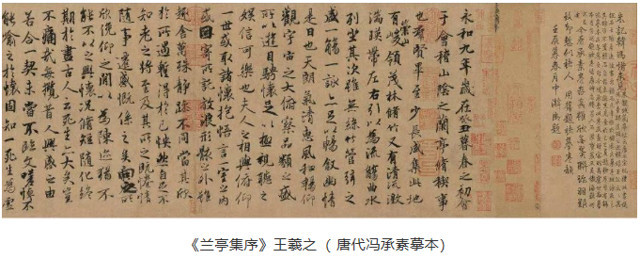 永和九年歲在癸丑暮春之初會
于會稽山陰之蘭亭脩稧事
也羣賢畢至少長咸集此地
有崇山峻領茂林脩竹又有清流激
湍暎帶左右引以為流觴曲水
列坐其次雖無絲竹管弦之
盛一觴一詠亦足以暢敘幽情
是日也天朗氣清惠風和暢仰
觀宇宙之大俯察品類之盛
所以遊目騁懷足以極視聽之
娛信可樂也夫人之相與俯仰
一世或取諸懷抱悟言一室之內
或因寄所託放浪形骸之外雖
趣舍萬殊靜躁不同當其欣
於所遇暫得於己怏然自足不
知老之將至及其所之既惓情
隨事遷感慨係之矣向之所
欣俛仰之閒以為陳迹猶不
能不以之興懷況脩短隨化終
期於盡古人云死生亦大矣豈
不痛哉每攬昔人興感之由
若合一契未嘗不臨文嗟悼不
能喻之於懷固知一死生為虛
《兰亭集序》王羲之（ 唐代冯承素摹本）